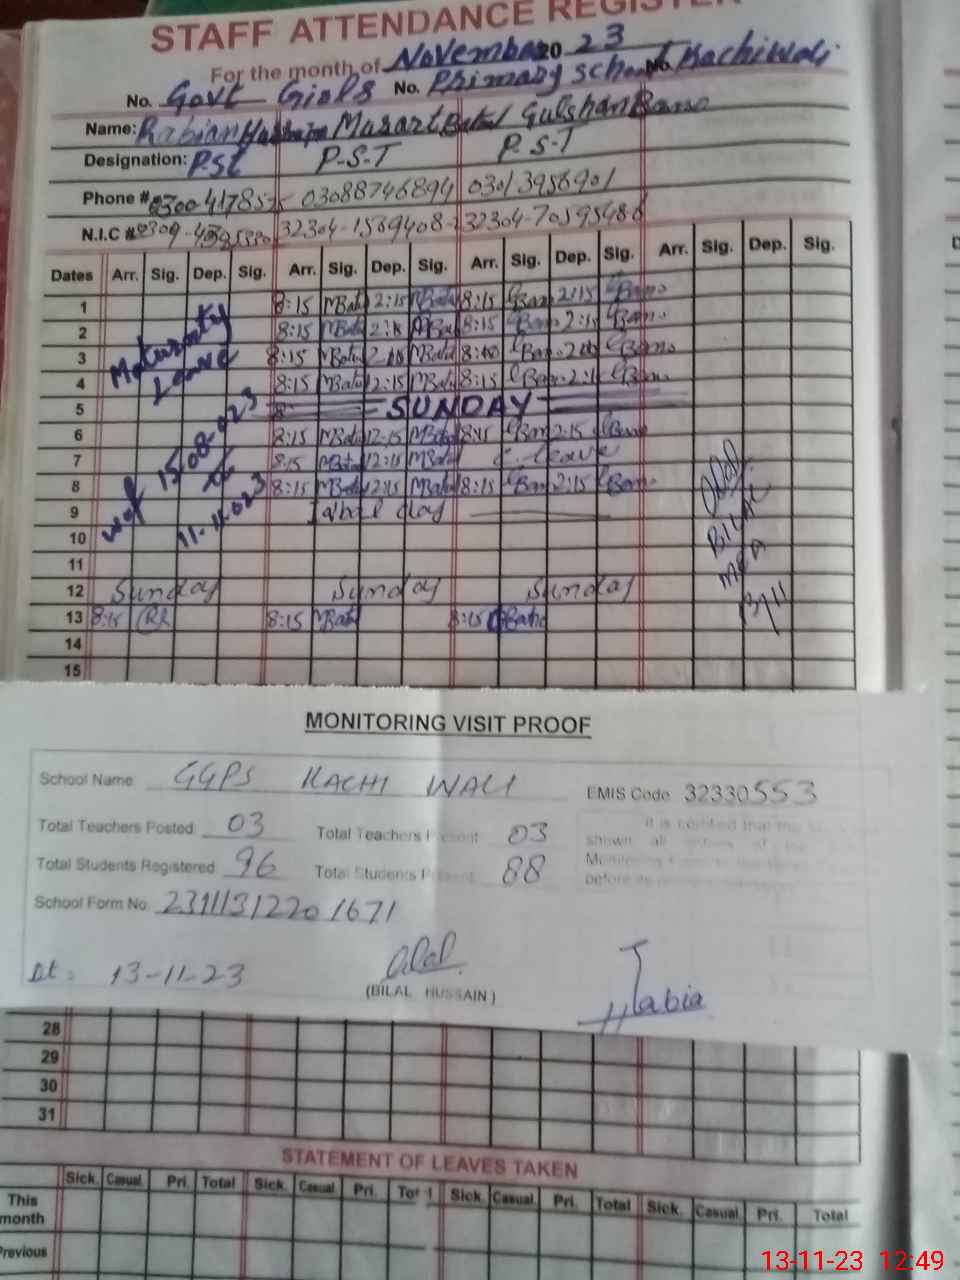 STAFF ATTENDANCE REGISTER
For the month of November 20 23
No. Govt Girls No. Primary School No. Kachiwali
Name: Musarat Gulshan Bano
Designation: PST P.S.T P.S.T
Phone # 03088746894 03013956901
N.I.C #
Dates Arr. Sig. Dep. Sig. Arr. Sig. Dep. Sig. Arr. Sig. Dep. Sig. Arr. Sig. Dep. Sig.
1 8:15 MBatul 2:15 MBatul 8:15 GBano 2:15 GBano
2 8:15 MBatul 2:15 MBatul 8:15 GBano 2:15 GBano
3 8:15 MBatul MBatul GBano GBano
4 8:15 MBatul 2:15 MBatul 8:15 GBano GBano
Maturnity Leave
5 SUNDAY
6 8:15 MBatul 2:15 MBatul 8:15 GBano 2:15 GBano
7 8:15 MBatul 2:15 MBatul C. Leave
8 8:15 MBatul 2:15 MBatul 8:15 GBano 2:15 GBano
wef 15.08.023 to 11.11.023
9 Iqbal day
10
11
12 Sunday Sunday Sunday
13 8:15 8:15 MBatul 8:15 GBano
Bilal
MEA
13/11
14
15
MONITORING VISIT PROOF
School Name GGPS KACHI WALI EMIS Code 32330553
Total Teachers Posted 03 Total Teachers Present 03
It is certified that the
shown all entries of the
Total Students Registered 96 Total Students Present 88
Monitoring
before
School Form No. 2311131220 1671
Dt: 13-11-23
(BILAL HUSSAIN)
Rabia
28
29
30
31
STATEMENT OF LEAVES TAKEN
Sick. Casual. Pri. Total Sick. Casual. Pri. Total Sick. Casual. Pri. Total Sick. Casual. Pri. Total
This month
Previous
13-11-23 12:49